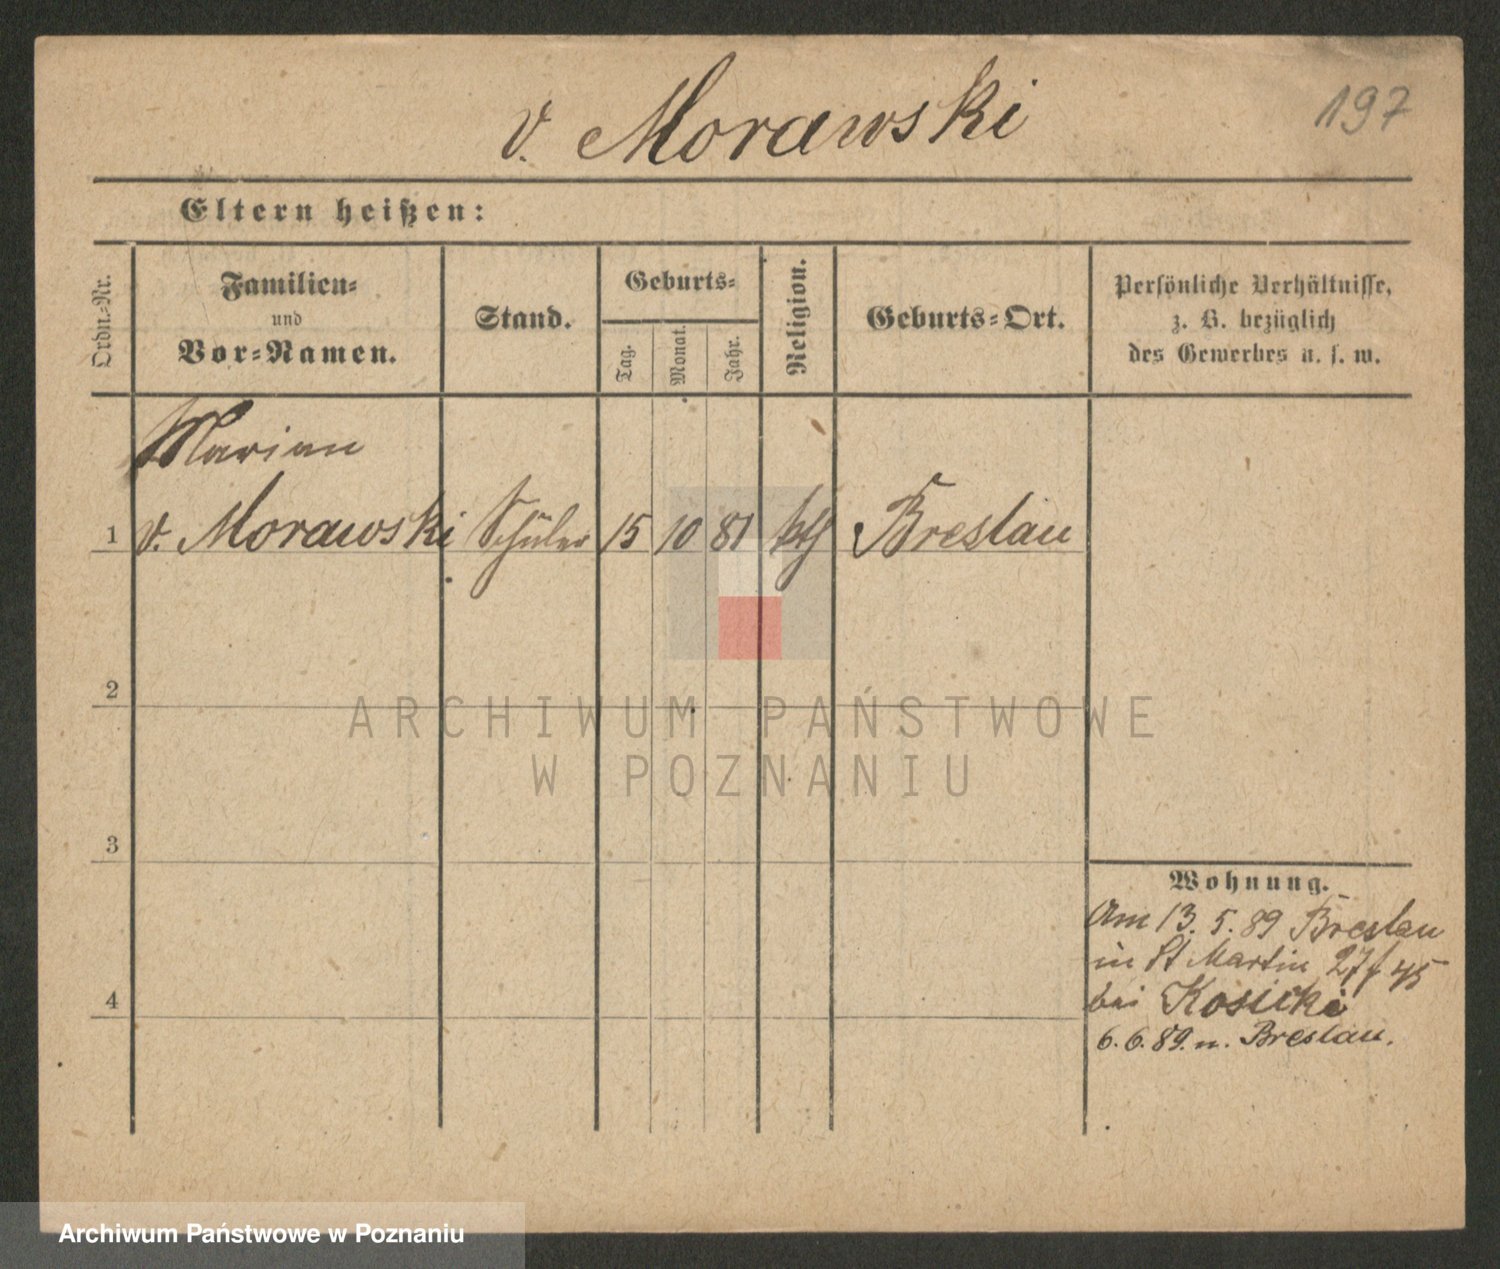 v. Morawski
197
Eltern heißen:
Ordn.-Nr.
Familien-
und
Vor-Namen.
Stand.
Geburts-
Tag.
Monat.
Jahr.
Religion.
Geburts-Ort.
Persönliche Verhältnisse,
z. B. bezüglich
des Gewerbes u. s. w.
Marian
1 v. Morawski Schüler 15 10 81 kth Breslau
2
ARCHIWUM PAŃSTWOWE
W POZNANIU
3
Wohnung.
Am 13. 5. 89 Breslau
in St Martin 27
4
bei Kosicki
6. 6. 89. n. Breslau.
Archiwum Państwowe w Poznaniu